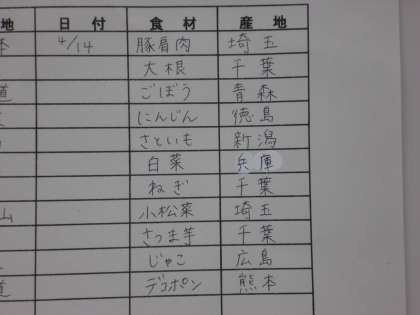 地 日付 食材 産地
本 4/14 豚肩肉 埼玉
大根 千葉
道 ごぼう 青森
にんじん 徳島
さといも 新潟
白菜 兵庫
ねぎ 千葉
山 小松菜 埼玉
さつま芋 千葉
じゃこ 広島
道 デコポン 熊本